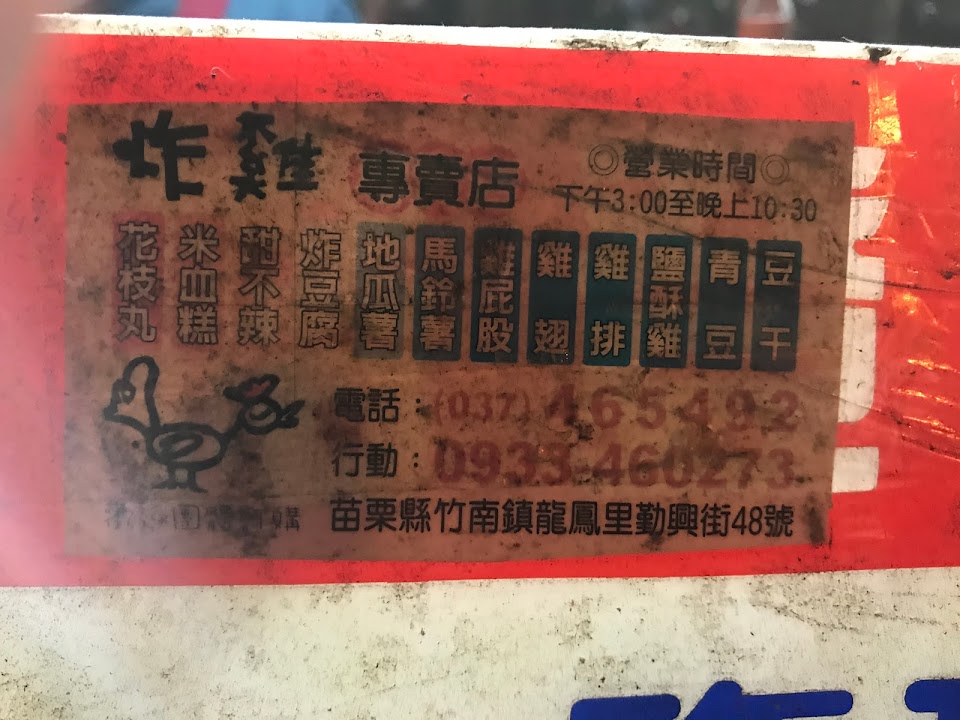 炸雞 專賣店
◎營業時間◎
下午3:00至晚上10:30
花枝丸
米血糕
甜不辣
炸豆腐
地瓜薯
馬鈴薯
雞屁股
雞翅
雞排
鹽酥雞
青豆
豆干
電話:(037)465492
行動:0933-460273
苗栗縣竹南鎮龍鳳里勤興街48號